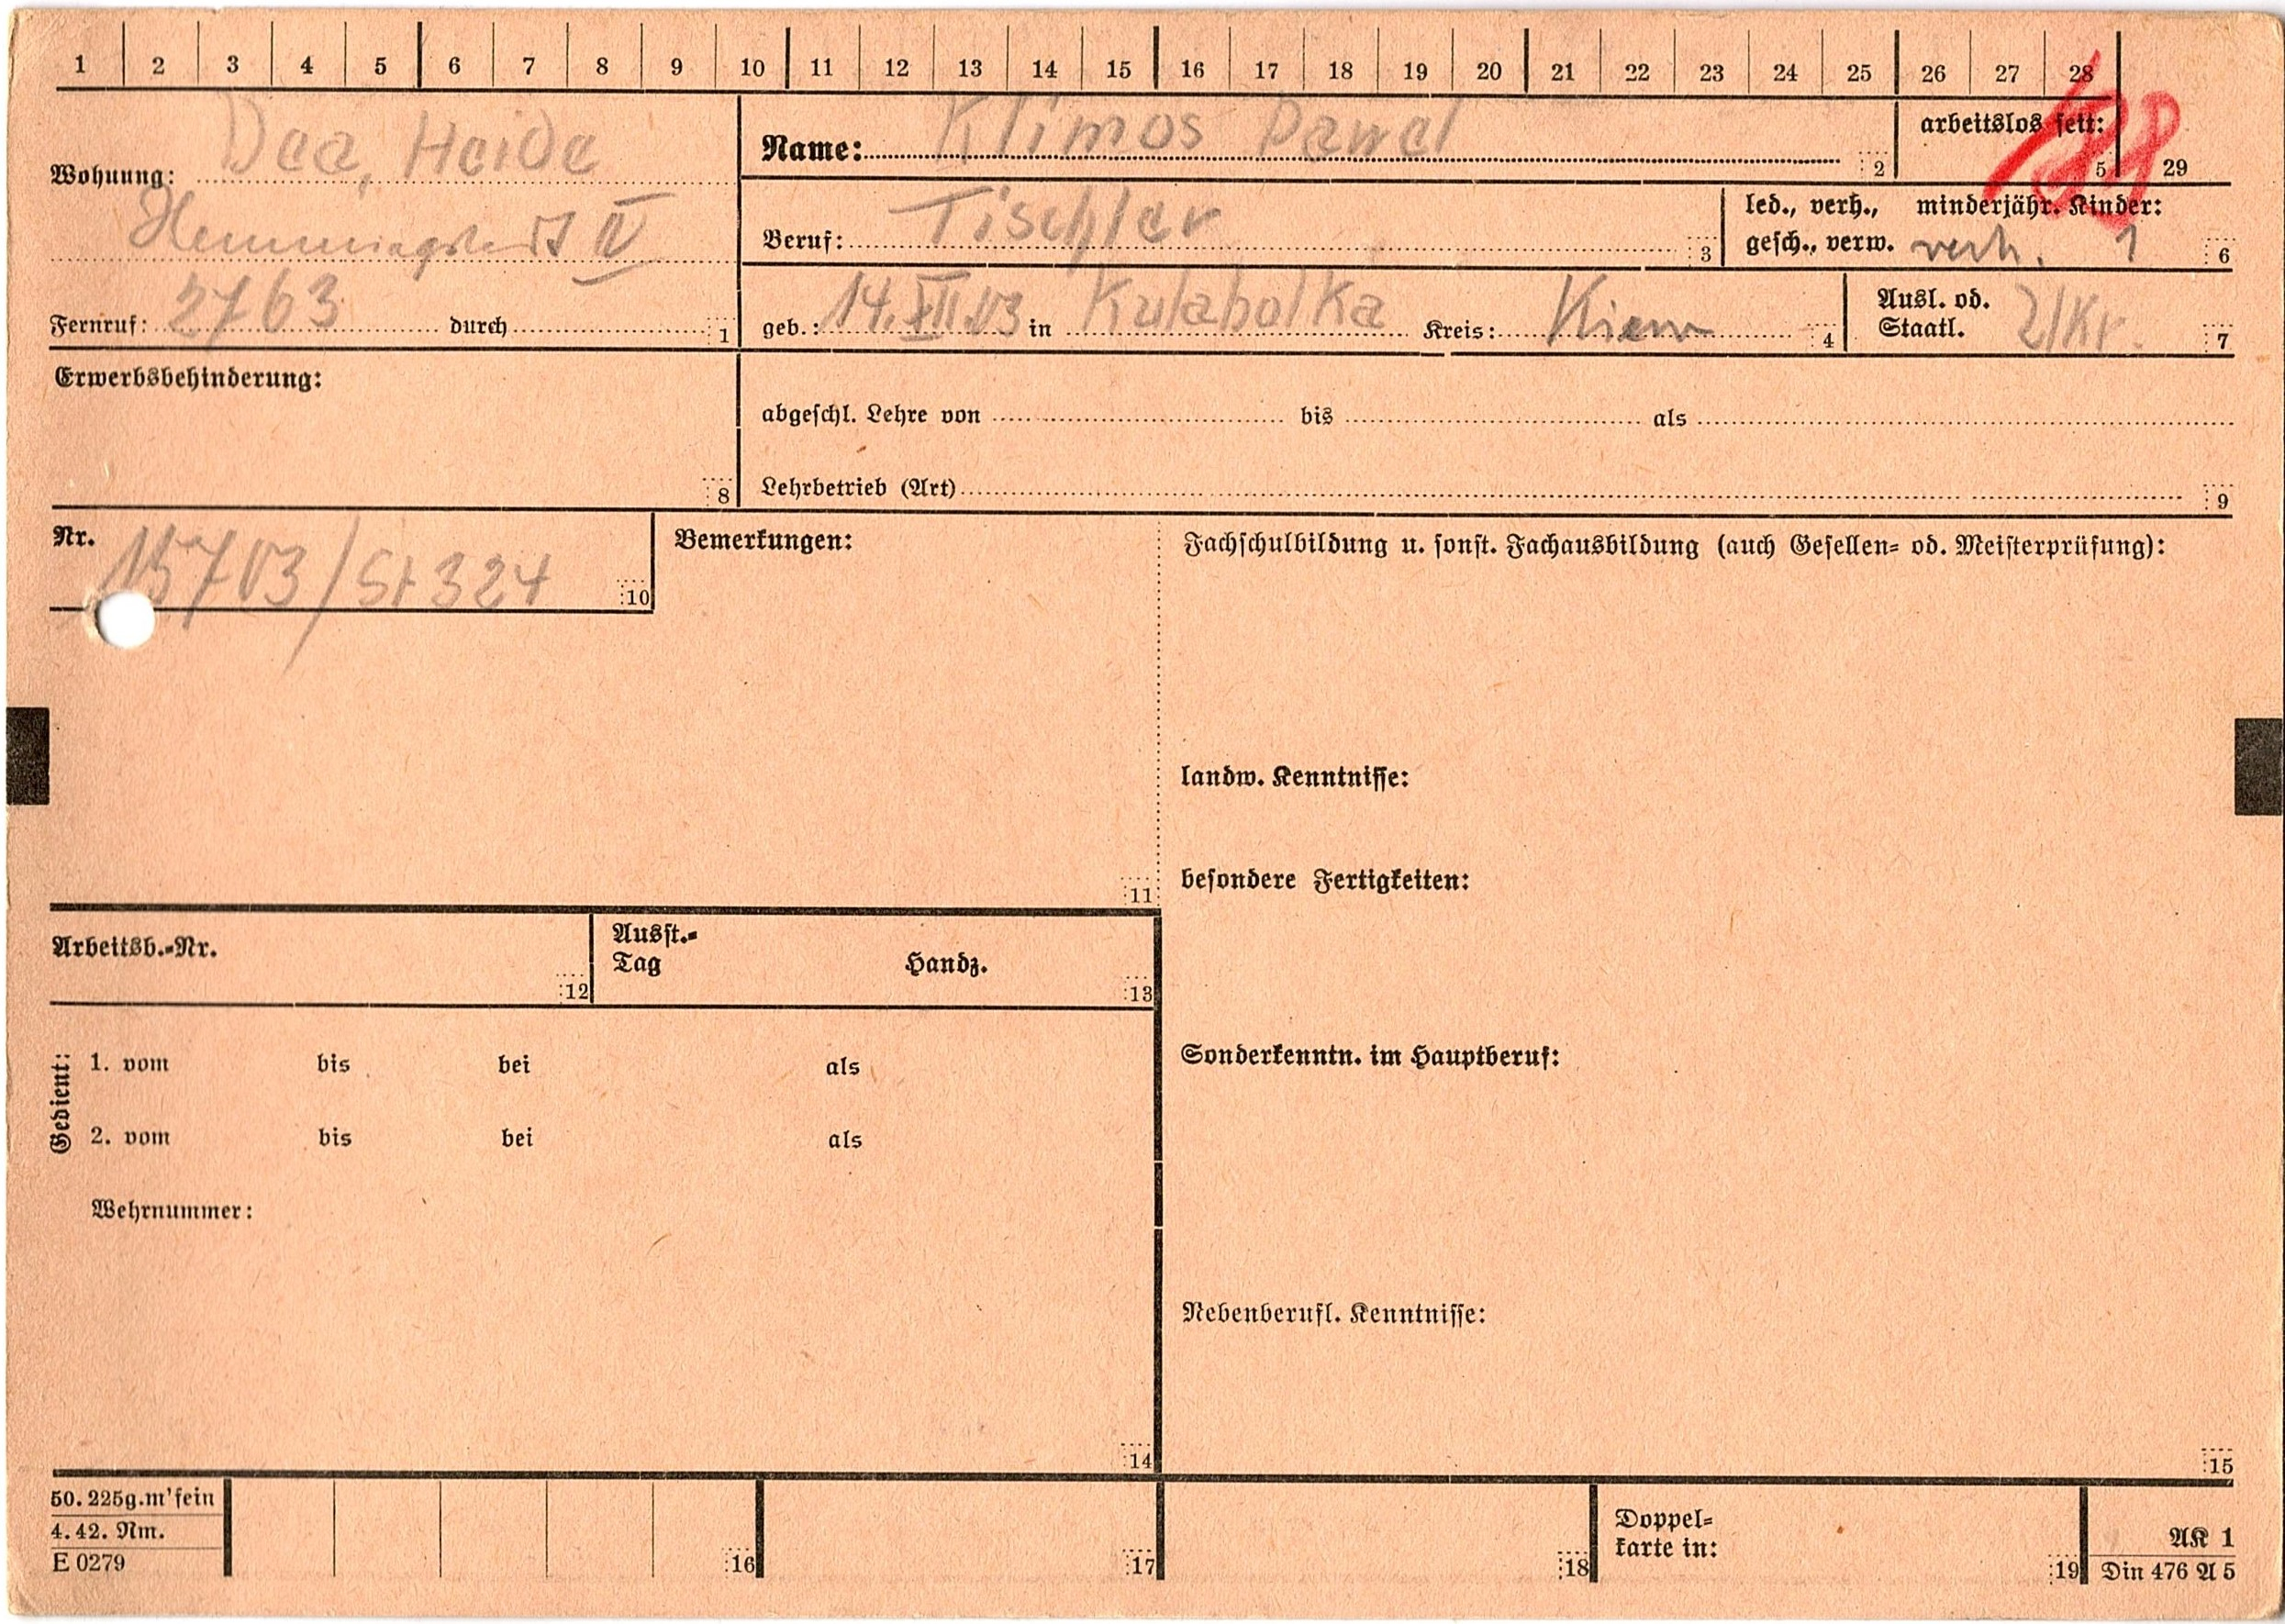 1 2 3 4 5 6 7 8 9 10 11 12 13 14 15 16 17 18 19 20 21 22 23 24 25 26 27 28
Wohnung: Dea, Heide
IV
Fernruf: 2763 durch 1
Name: Klimos Pawel 2
arbeitslos seit: 5 29
Beruf: Tischler 3
led., verh., minderjähr. Kinder:
gesch., verw. verh. 1 6
geb.: 14.XII.03 in Kulabolka Kreis: Kiew 4
Ausl. od.
Staatl. Ukr. 7
Erwerbsbehinderung:
8
abgeschl. Lehre von bis als
Lehrbetrieb (Art) 9
Nr. 15703/St 324 10
Bemerkungen:
11
Fachschulbildung u. sonst. Fachausbildung (auch Gesellen- od. Meisterprüfung):
landw. Kenntnisse:
besondere Fertigkeiten:
Sonderkenntn. im Hauptberuf:
Nebenberufl. Kenntnisse:
15
Arbeitsb.-Nr. 12
Ausst.-
Tag Handz. 13
Gedient:
1. vom bis bei als
2. vom bis bei als
Wehrnummer:
14
50. 225g.m'fein
4. 42. Nm.
E 0279
16 17 18
Doppel-
karte in: 19
AK 1
Din 476 A 5